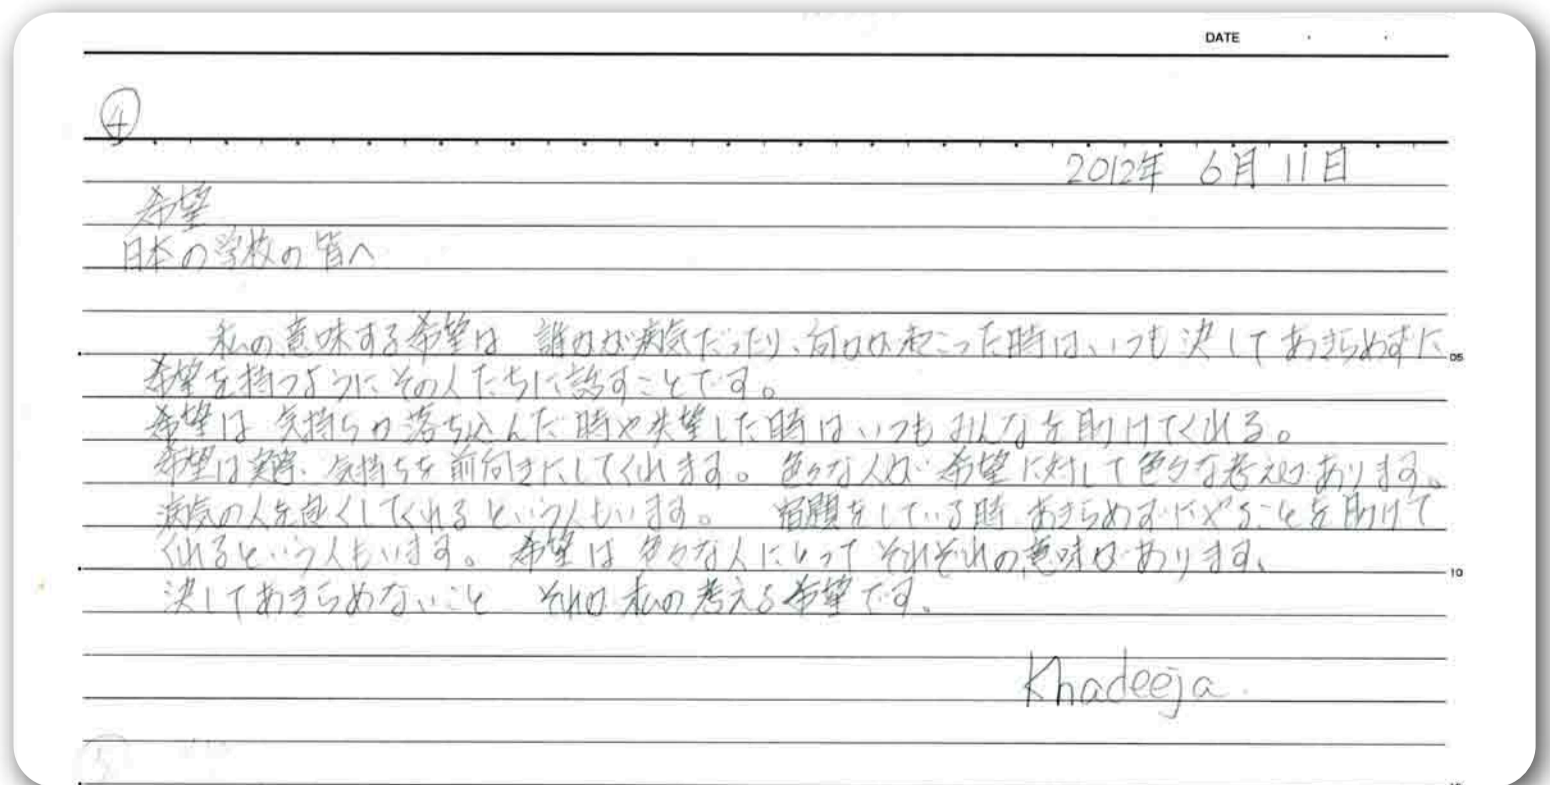 DATE
④
2012年 6月 11日
希望
日本の学校の皆へ
私の意味する希望は 誰かが病気だったり、何かが起こった時は、いつも決してあきらめずに
05
希望を持つようにその人たちに話すことです。
希望は 気持ちが落ち込んだ時や失望した時はいつもみんなを助けてくれる。
希望は 気持ちを前向きにしてくれます。色々な人が 希望に対して色々な考えがあります。
病気の人を良くしてくれるという人もいます。 宿題をしている時 あきらめずにやることを助けて
くれるという人もいます。希望は 色々な人にとって それぞれの意味があります、
10
決してあきらめないこと それが 私の考える希望です。
Khadeeja.